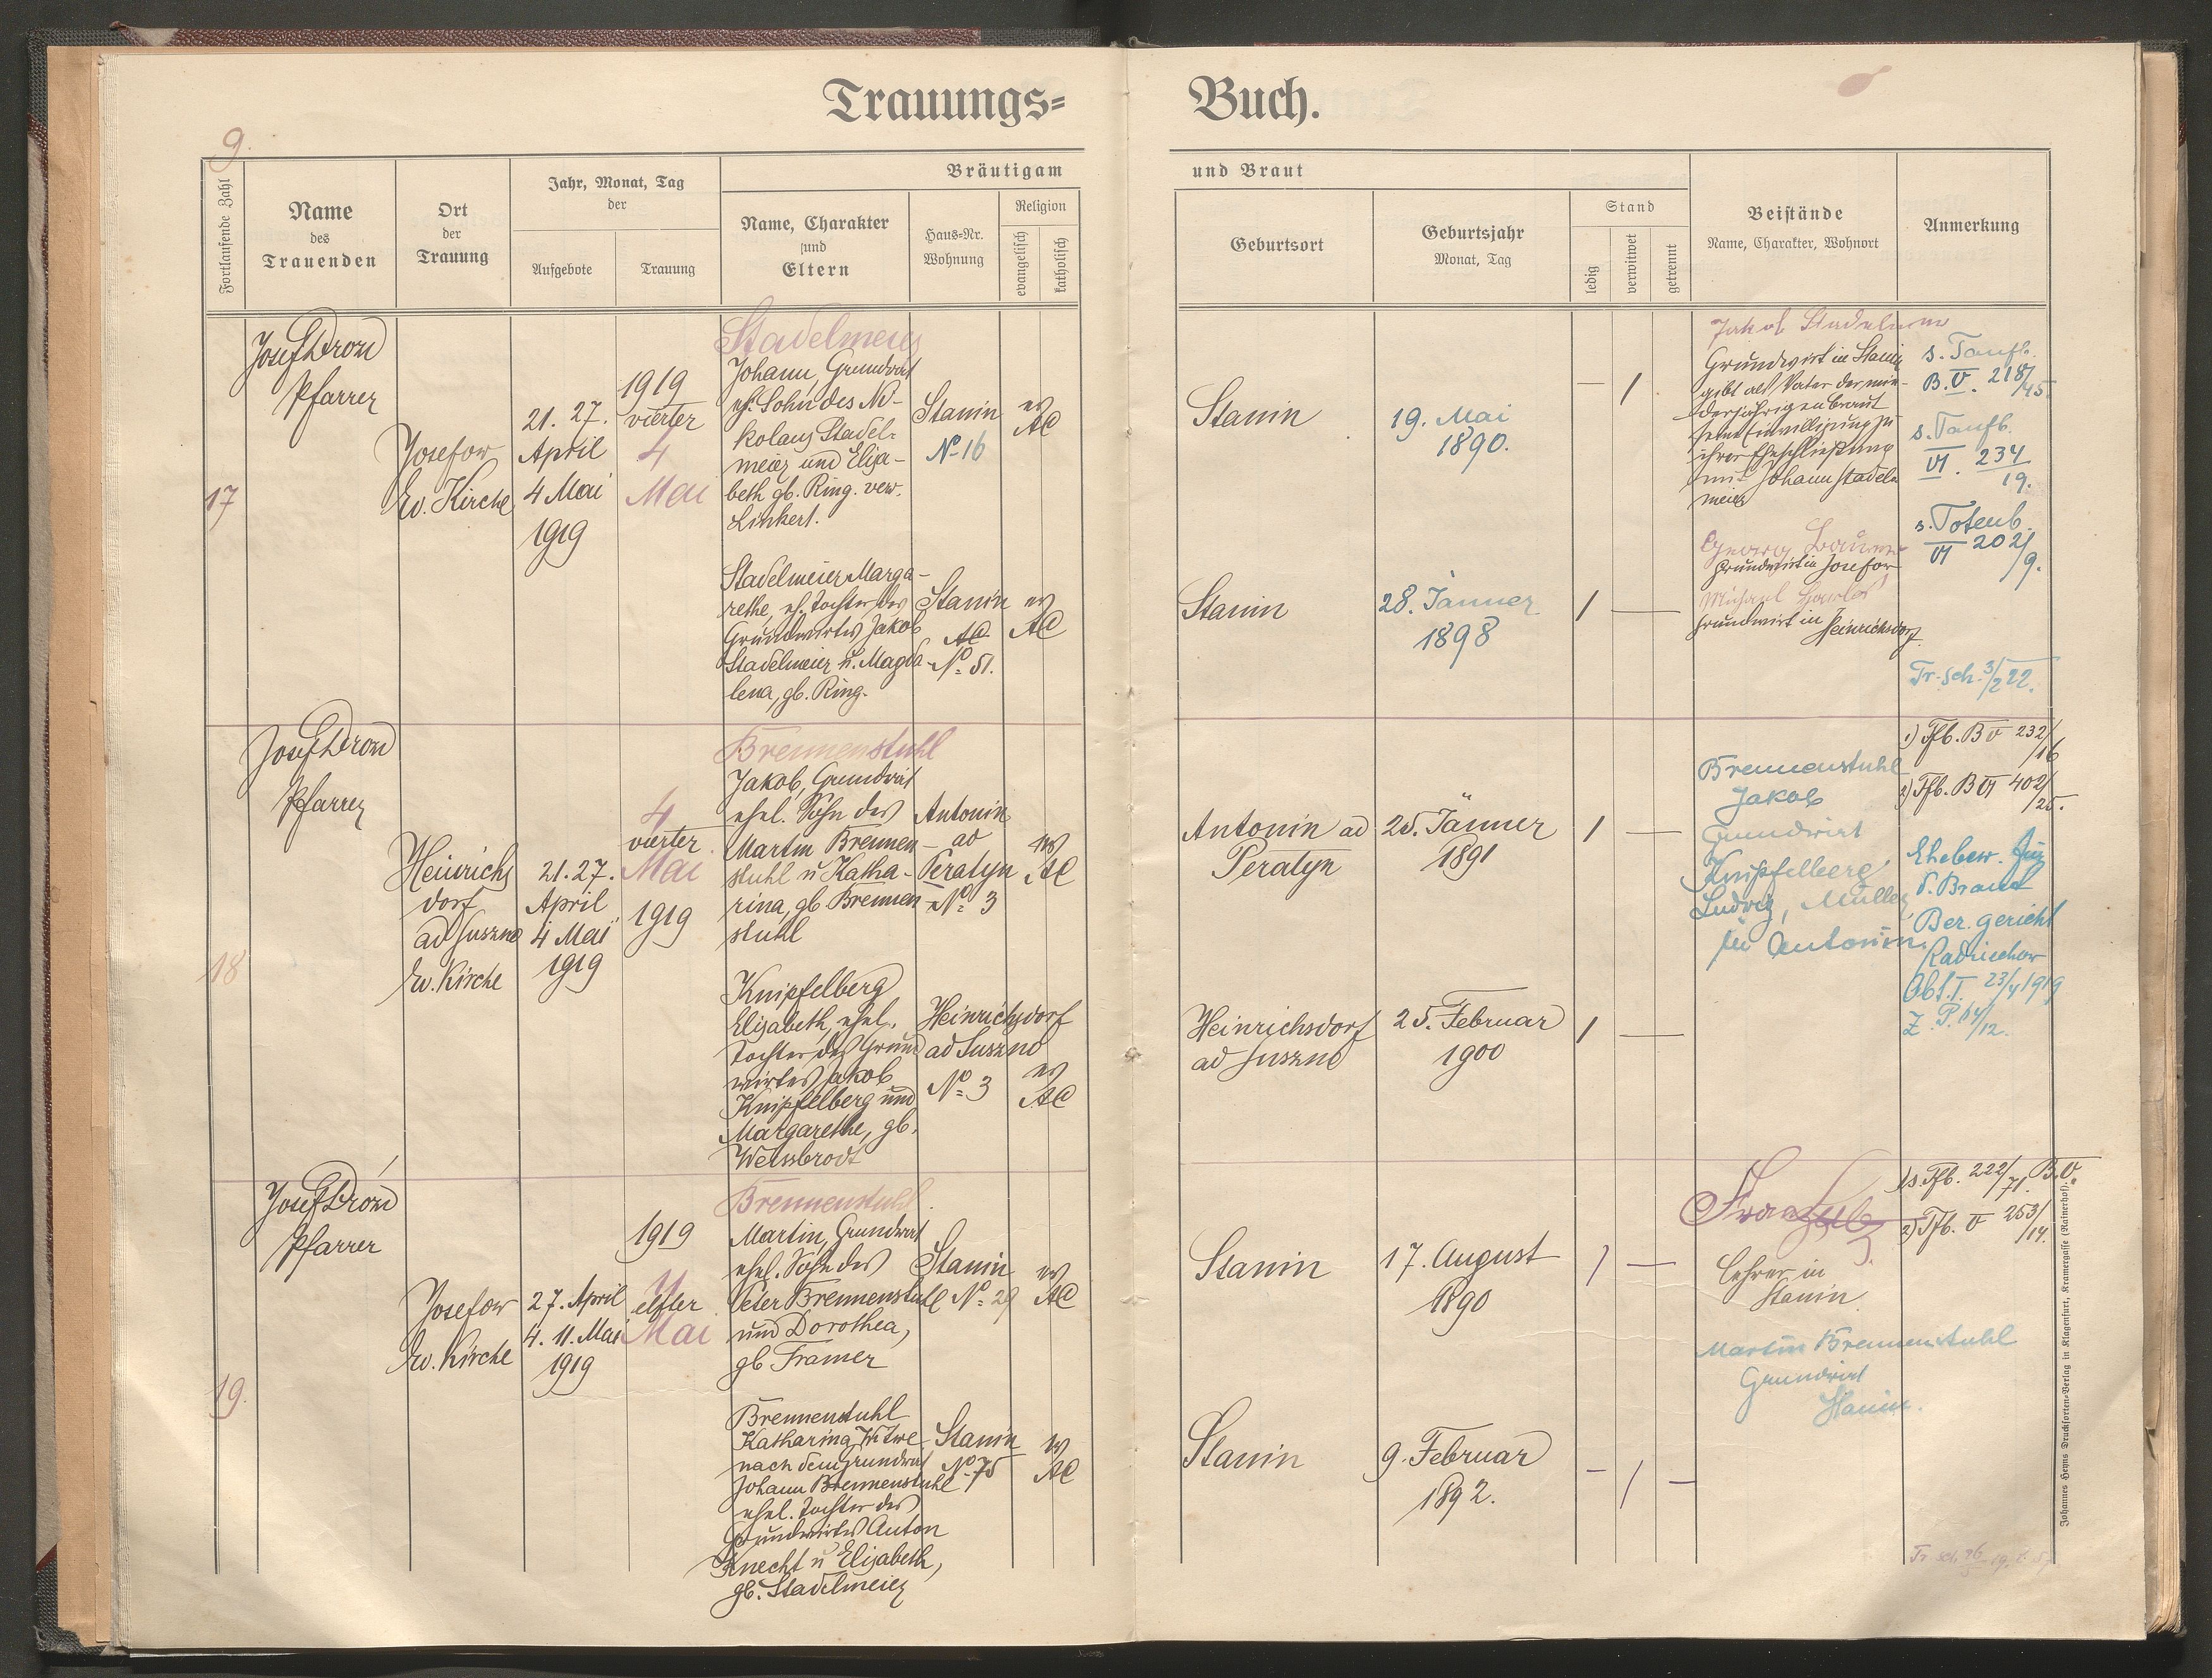 Trauungs= Buch.
9.
Fortlaufende Zahl
Name
des
Trauenden
Ort
der
Trauung
Jahr, Monat, Tag
der
Aufgebote
Trauung
Bräutigam
Name, Charakter
und
Eltern
Haus=Nr.
Wohnung
Religion
evangelisch
katholisch
und Braut
Geburtsort
Geburtsjahr
Monat, Tag
Stand
ledig
verwitwet
getrennt
Beistände
Name, Charakter, Wohnort
Anmerkung
17
Josef Drozd
Pfarrer
Josefow
Ev. Kirche
21. 27.
April
4 Mai
1919
1919
vierter
4
Mai
Stadelmeier
Johann, Grundwirt
eh. Sohn des Ni-
kolaus Stadel-
meier und Elisa-
beth gb. Ring. verw.
Linkert.
Stanin
No 16
ev
AC
Stanin
19. Mai
1890.
Stadelmeier Marga-
rethe, eh. Tochter des
Grundwirtes Jakob
Stadelmeier u. Magda-
lena, gb. Ring.
Stanin
AC
No 51.
ev
AC
Stanin
28. Jänner
1898
Jakob Stadelmeier
Grundwirt in Stanin
gibt als Vater der min-
derjährigen Braut
seine Einwilligung zu
ihrer Eheschließung
mit Johann Stadel-
meier
Georg
Grundwirt in Josefow
Michael
Grundwirt in Heinrichsdorf
s. Taufb.
B. V. 218/45.
s. Taufb.
VI. 234/19.
s. Totenb.
VI 202/9.
Tr. sch. 3/2 22.
18
Josef Drozd
Pfarrer
Heinrichs
dorf
ad Suszno
Ev. Kirche
21. 27.
April
4 Mai
1919
4
vierter
Mai
1919
Brennenstuhl
Jakob, Grundwirt
ehel. Sohn des
Martin Brennen-
stuhl u Katha-
rina, gb Brennen-
stuhl
Antonin
ad
Peratyn
No 3
ev
AC
Antonin ad
Peratyn
25. Jänner
1891
Knipfelberg
Elisabeth, ehel.
Tochter des Grund
wirtes Jakob
Knipfelberg und
Margarethe, gb.
Weissbrodt
Heinrichsdorf
ad Suszno
No 3
ev
AC
Heinrichsdorf
ad Suszno
25. Februar
1900
Brennenstuhl
Jakob
Grundwirt
Knipfelberg
Ludwig, Müller
in Antonin.
1) Tfb. B V 232/16
2) Tfb. B VI 402/25.
Ehebew. für
d. Braut
Bez. gericht
Radziechow
Abt. I. 23/4 1919
Z. P. 64/12.
19.
Josef Drozd
Pfarrer
Josefow
Ev. Kirche
27. April
4. 11. Mai
1919
1919
11
elfter
Mai
Brennenstuhl
Martin, Grundwirt
ehel. Sohn des
Peter Brennenstuhl
und Dorothea,
gb Framer
Stanin
No 29
ev
AC
Stanin
17. August
1890
Brennenstuhl
Katharina, Witwe
nach dem Grundwirt
Johann Brennenstuhl
ehel. Tochter des
Grundwirtes Anton
Knecht u Elisabeth,
gb. Stadelmeier
Stanin
No 75
ev
AC
Stanin
9. Februar
1892.
Lehrer in
Stanin.
Martin Brennenstuhl
Grundwirt
Stanin.
1) s. Tfb. 222/71. B. V.
2) Tfb. V 253/14.
Johannes Heyns Drucksorten=Verlag in Klagenfurt, Kramergasse (Rainerhof).